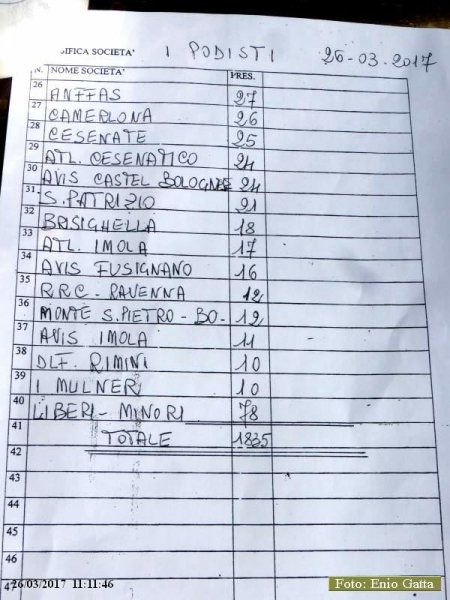 SIFICA SOCIETA' I PODISTI 26-03.2017
N. NOME SOCIETA' PRES.
26 ANFFAS 27
27 CAMERLONA 26
28 CESENATE 25
29 ATL. CESENATICO 24
30 AVIS CASTEL BOLOGNESE 24
31 S. PATRIZIO 21
32 BRISIGHELLA 18
33 ATL. IMOLA 17
34 AVIS FUSIGNANO 16
35 R.R.C - RAVENNA 12
36 MONTE S. PIETRO - BO - 12
37 AVIS IMOLA 11
38 DLF. RIMINI 10
39 I MULNER 10
40 LIBERI - MINORI 78
41 TOTALE 1835
42
43
44
45
46
47
26/03/2017 11:11:46
Foto: Enio Gatta